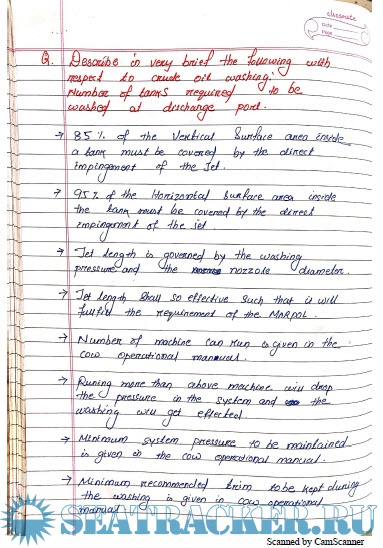 classmate
Date
Page
Q. Describe in very brief the following with
respect to crude oil washing:
Number of tanks required to be
washed at discharge port.
→ 85% of the Vertical Surface area inside
a tank must be covered by the direct
impingement of the Jet.
→ 95% of the Horizontal Surface area inside
the tank must be covered by the direct
impingement of the jet
→ Jet length is governed by the washing
pressure and the nozzole diameter.
→ Jet length shall so effective such that it will
fulfil the requirement of the MARPOL.
→ Number of machine can run is given in the
cow operational manual.
→ Runing more than above machine will drop
the pressure in the system and the
washing will get effected.
→ Minimum system pressure to be maintained
is given in the cow operational manual.
→ Minimum recommended trim to be kept during
the washing is given in cow operational
manual
SEATRACKER.RU
Scanned by CamScanner